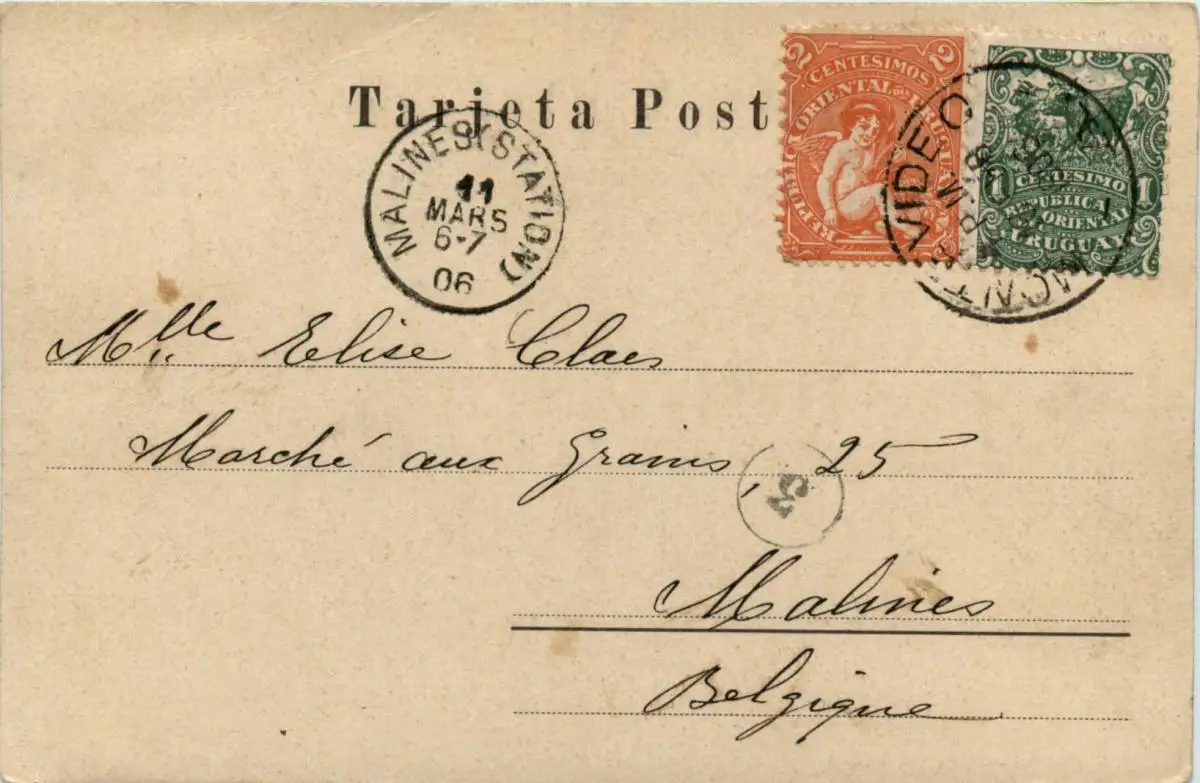 Tarjeta Post
2 CENTESIMOS 2
REPUBLICA ORIENTAL DEL URUGUAY
1 CENTESIMO 1
REPUBLICA
ORIENTAL
URUGUAY
MALINES (STATION)
11
MARS
6-7
06
Mlle Elise Claes
Marché aux Grains, 25
3
Malines
Belgique